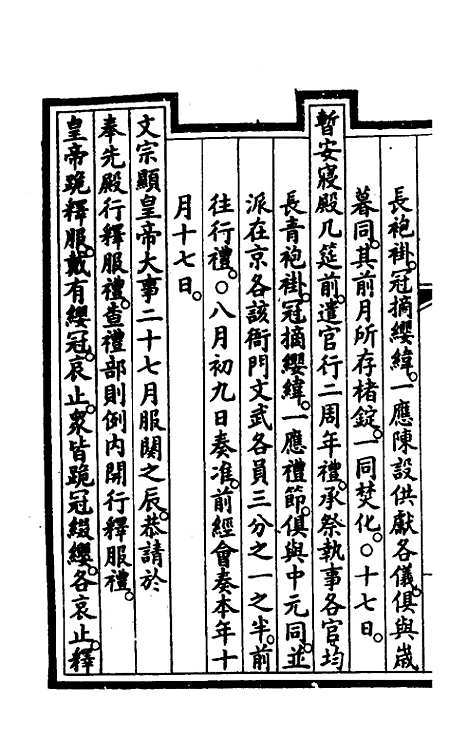 長袍褂。冠摘纓緯。一應陳設供獻各儀。俱與歲
暮同。其前月所存楮錠。一同焚化。○十七日。
暫安寢殿几筵前。遣官行二周年禮。承祭執事各官。均
長青袍褂。冠摘纓緯。一應禮節。俱與中元同。並
派在京各該衙門文武各員三分之一之半。前
往行禮。○八月初九日奏准。前經會奏本年十
月十七日。
文宗顯皇帝大事二十七月服闋之辰。恭請於
奉先殿行釋服禮。查禮部則例內開行釋服禮。
皇帝跪釋服。戴有纓冠。哀止。衆皆跪冠綴纓。各哀止。釋